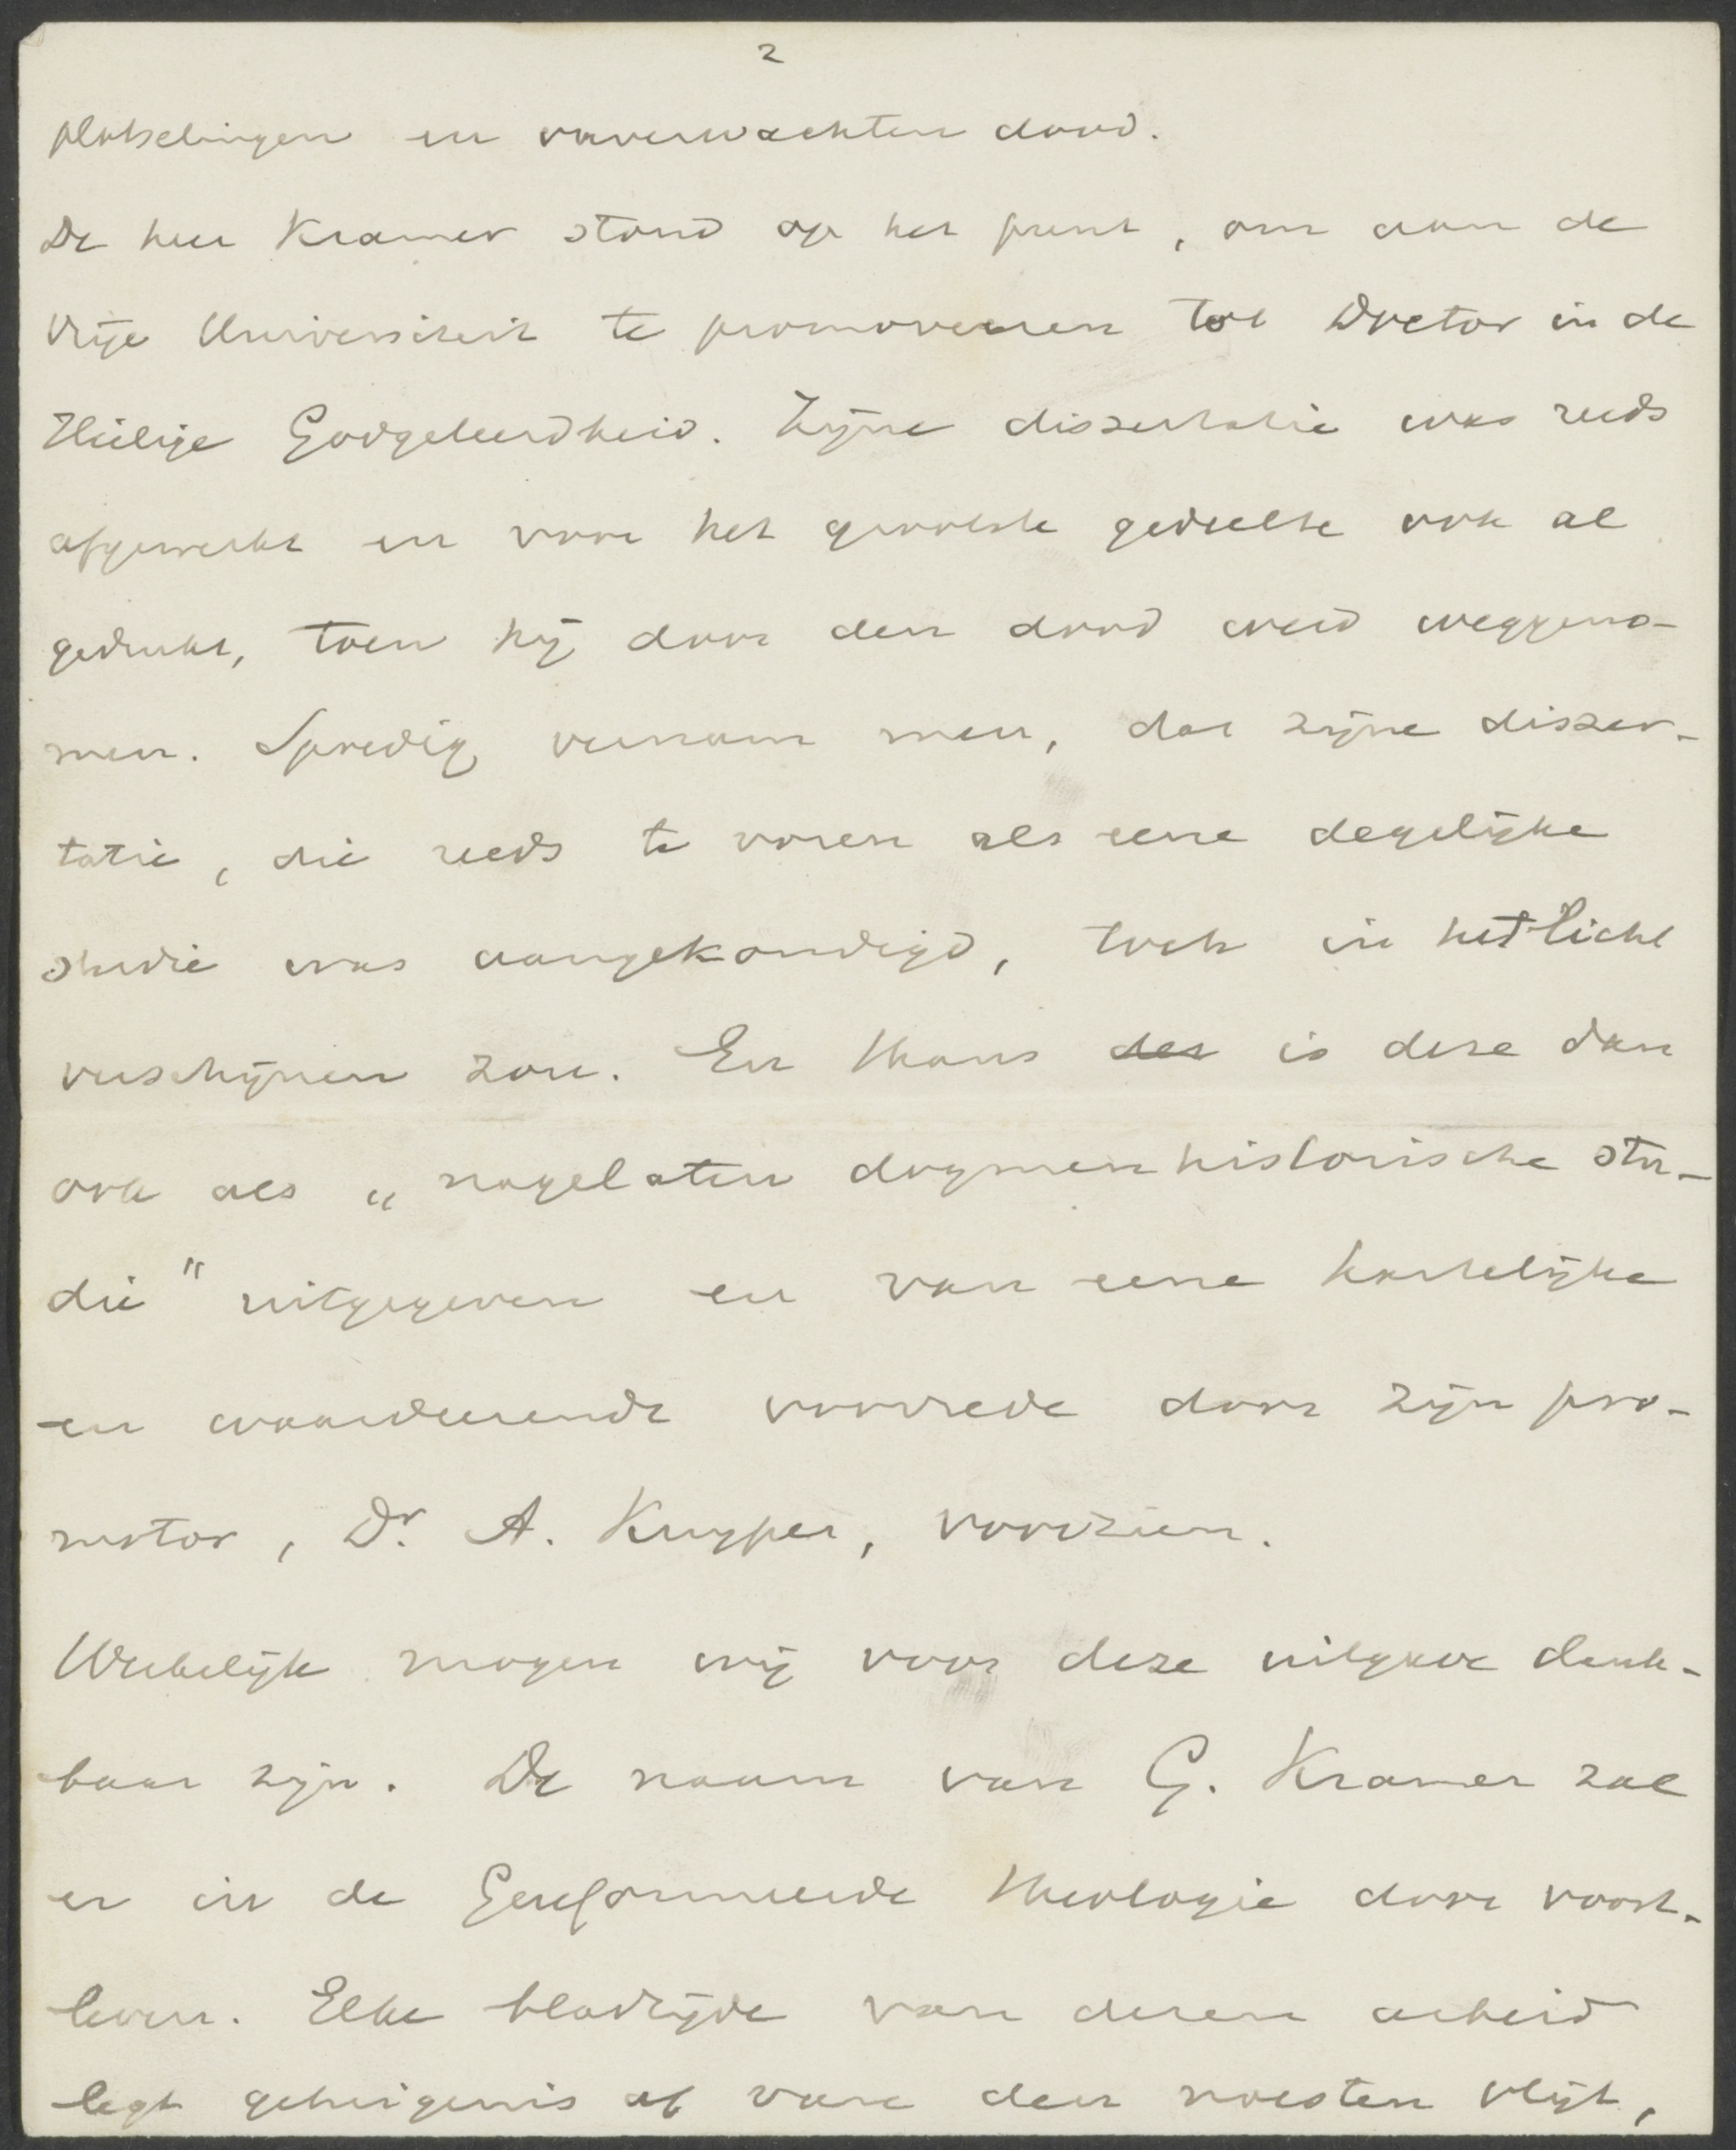 2
plotselingen en onverwachten dood.
De heer Kramer stond op het punt, om aan de
Vrije Universiteit te promoveeren tot Doctor in de
Heilige Godgeleerdheid. Zijne dissertatie was reeds
afgewerkt en voor het grootste gedeelte ook al
gedrukt, toen hij door den dood werd weggeno-
men. Spoedig vernam men, dat zijne disser-
tatie, die reeds te voren als eene degelijke
studie was aangekondigd, toch in het licht
verschijnen zou. En thans des is deze dan
ook als „nagelaten dogmenhistorische stu-
die" uitgegeven en van eene hartelijke
en waardeerende voorrede door zijn pro-
motor, Dr. A. Kuyper, voorzien.
Werkelijk mogen wij voor deze uitgave dank-
baar zijn. De naam van G. Kramer zal
er in de Gereformeerde theologie door voort-
leven. Elke bladzijde van dezen arbeid
legt getuigenis af van den noesten vlijt,